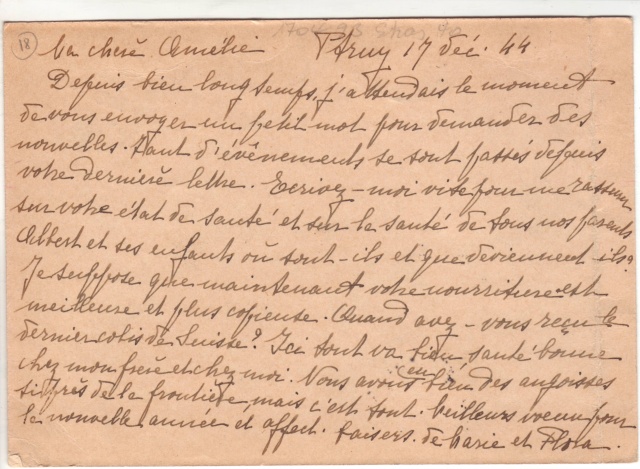 18
Ma chere Amélie Ptruy 17 Déc. 44
Depuis bien longtemps, j'attendais le moment
de vous envoyer un petit mot pour demander des
nouvelles. Tant d'évênements se sont passés depuis
votre dernière lettre. Ecrivez-moi vite pour me rassurer
sur votre état de santé et sur la santé de tous nos parents
Albert et ses enfants où sont-ils et que deviennent-ils?
Je suppose que maintenant votre nourriture est
meilleure et plus copieuse. Quand avez-vous reçu le
dernier colis de Suisse? Ici tout va bien santé bonne
chez mon frère et chez moi. Nous avons eu bien des angoisses
si près de la frontière, mais c'est tout. Meilleurs voeux pour
la nouvelle année et affect. baisers. de Marie et Flora.